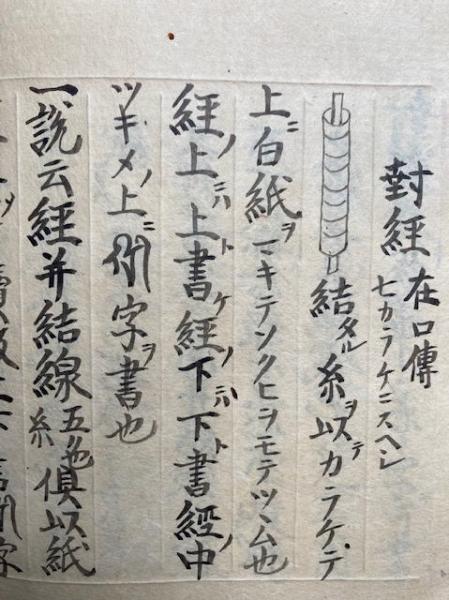 封經 在口傳
七カラケニスヘシ
結タル糸ヲ以テカラケテ
上ニ白紙ヲマキテシクヒヲモテツヽム也
經ノ上ニハ上ト書ケ經ノ下ニハ下ト書經ノ中
ツキメノ上ニ 字ヲ書也
一說云經并結線五色糸俱以紙